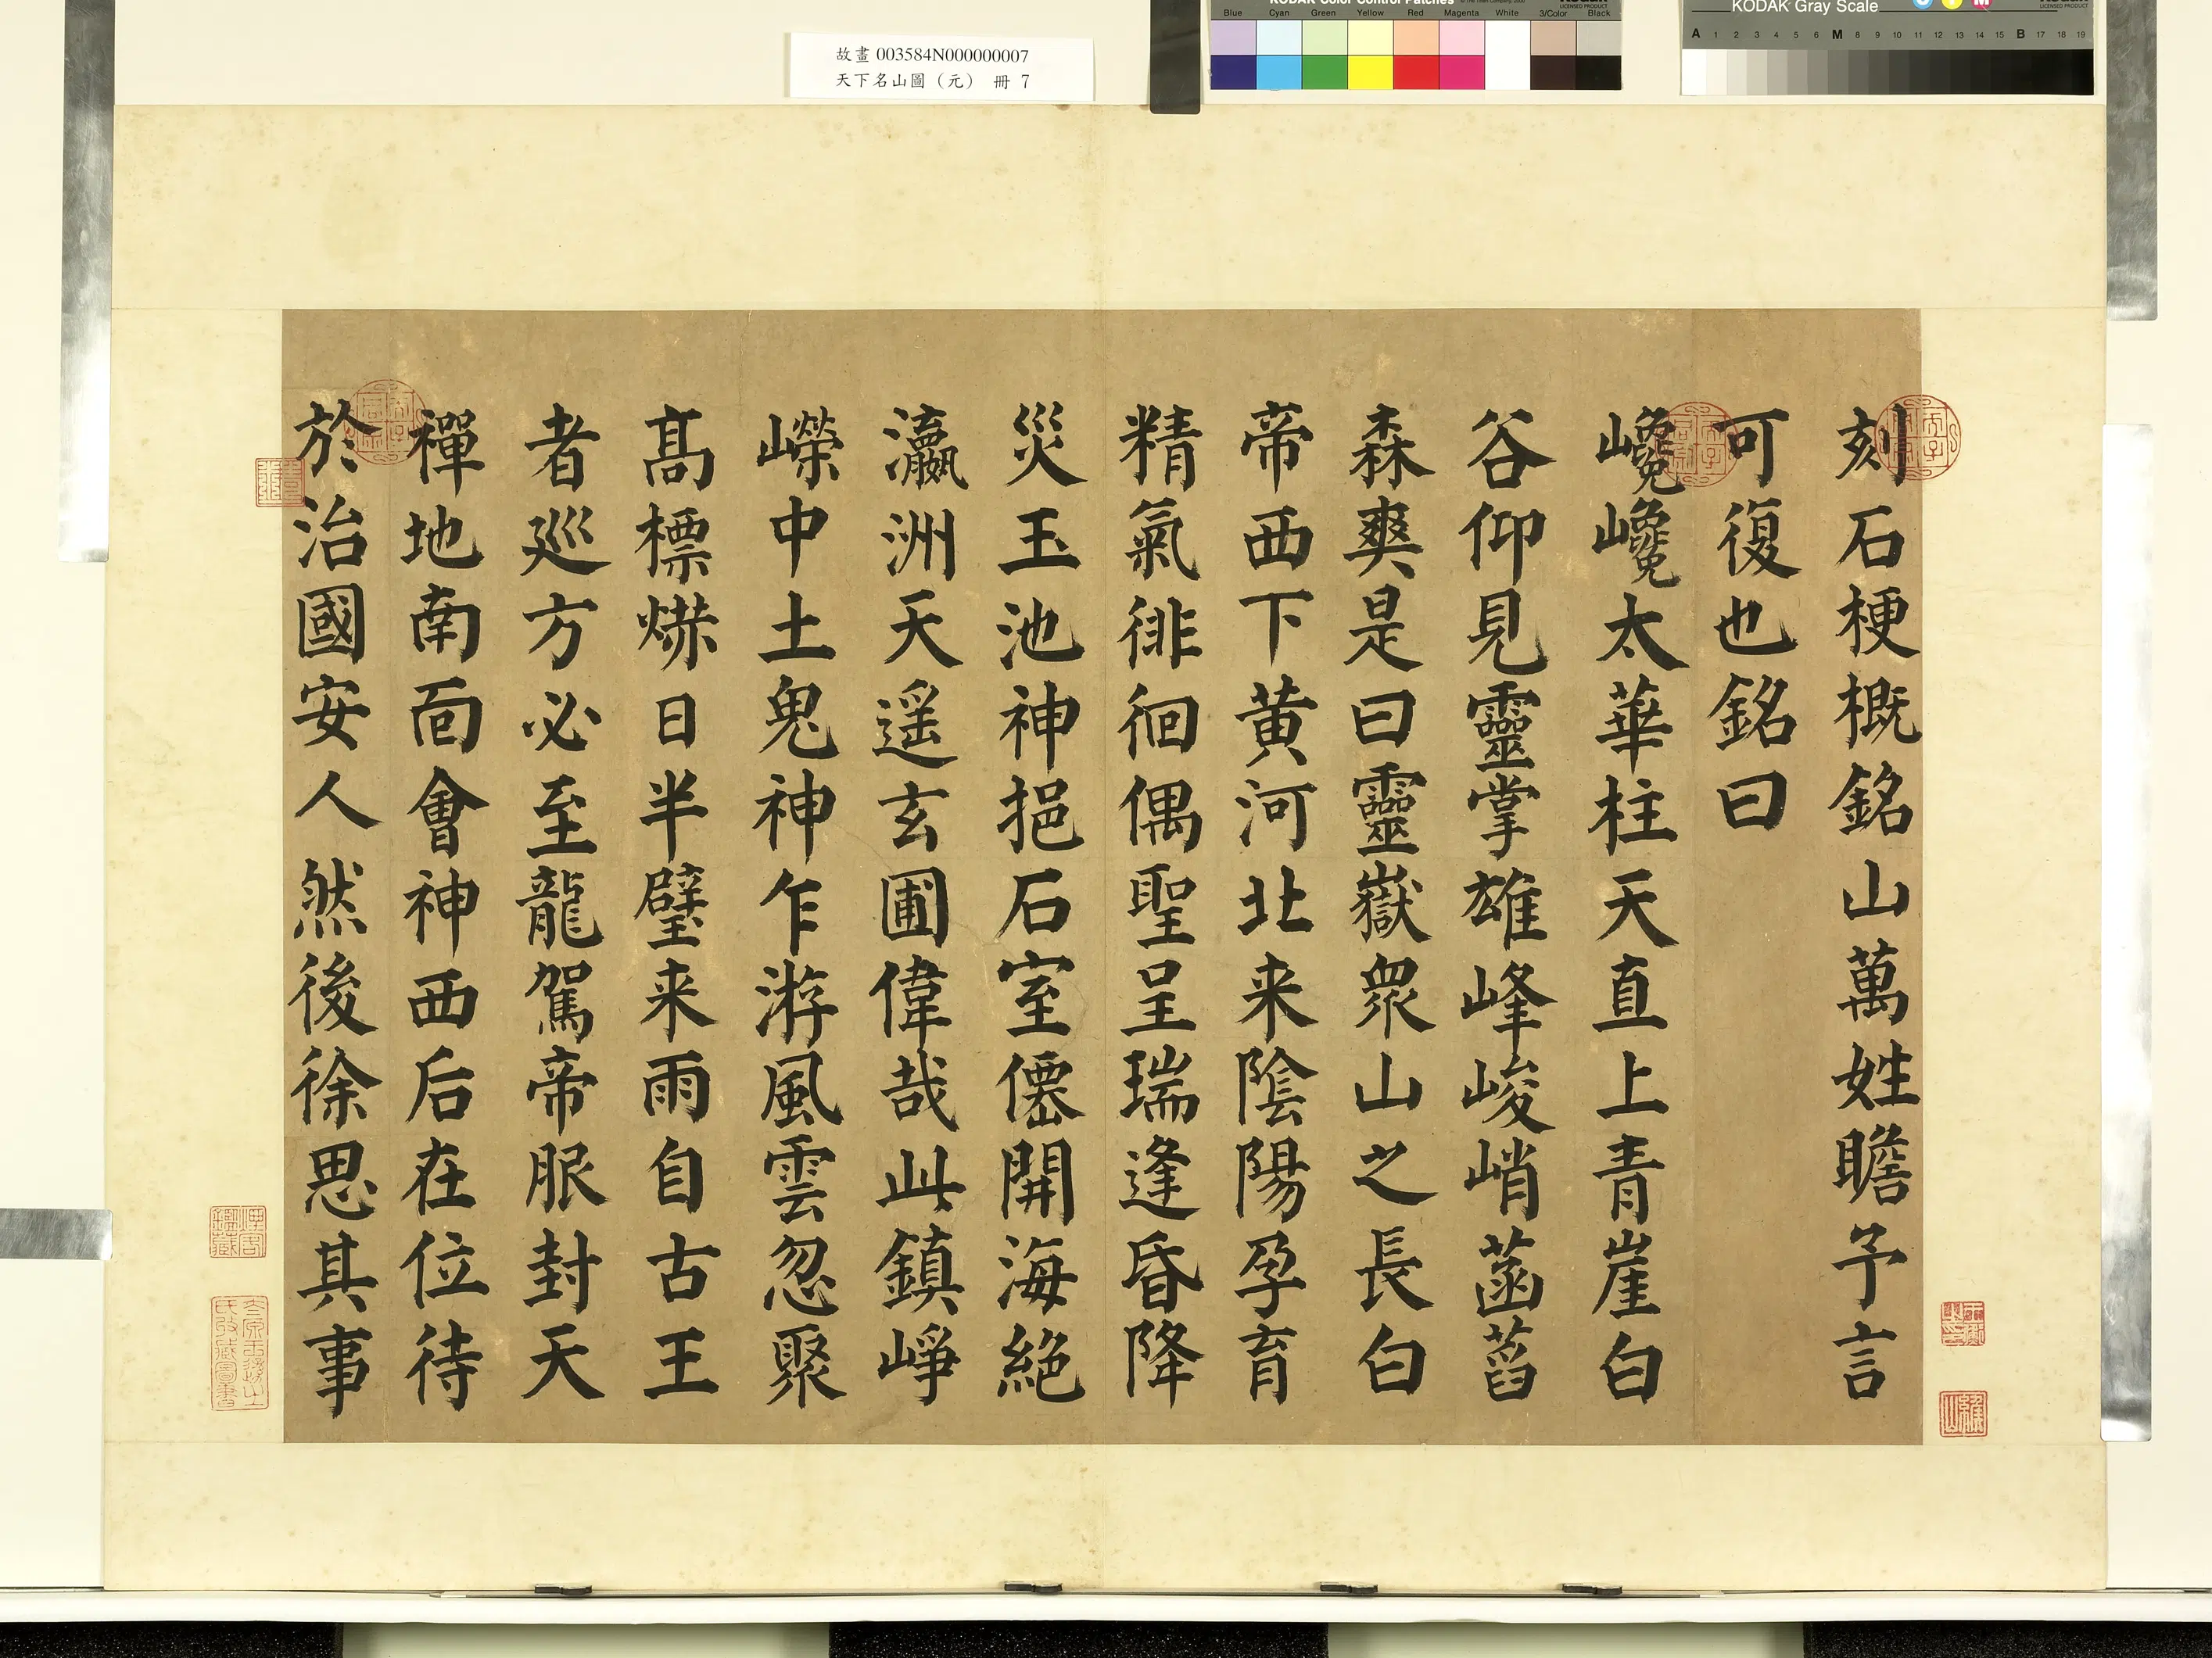 KODAK Color Control Patches
Blue Cyan Green Yellow Red Magenta White 3/Color Black
KODAK Gray Scale
A 1 2 3 4 5 6 M 8 9 10 11 12 13 14 15 B 17 18 19
故畫 003584N000000007
天下名山圖（元） 冊 7
刻石梗概銘山萬姓瞻予言
可復也銘曰
巉巉太華柱天直上青崖白
谷仰見靈掌雄峰峻峭菡萏
森爽是曰靈嶽衆山之長白
帝西下黄河北来陰陽孕育
精氣徘徊偶聖呈瑞逢昏降
災玉池神挹石室僊開海絶
瀛洲天遥玄圃偉哉此鎮崢
嶸中土鬼神乍游風雲忽聚
髙標爀日半壁来雨自古王
者巡方必至龍駕帝服封天
禪地南面會神西后在位待
於治國安人然後徐思其事